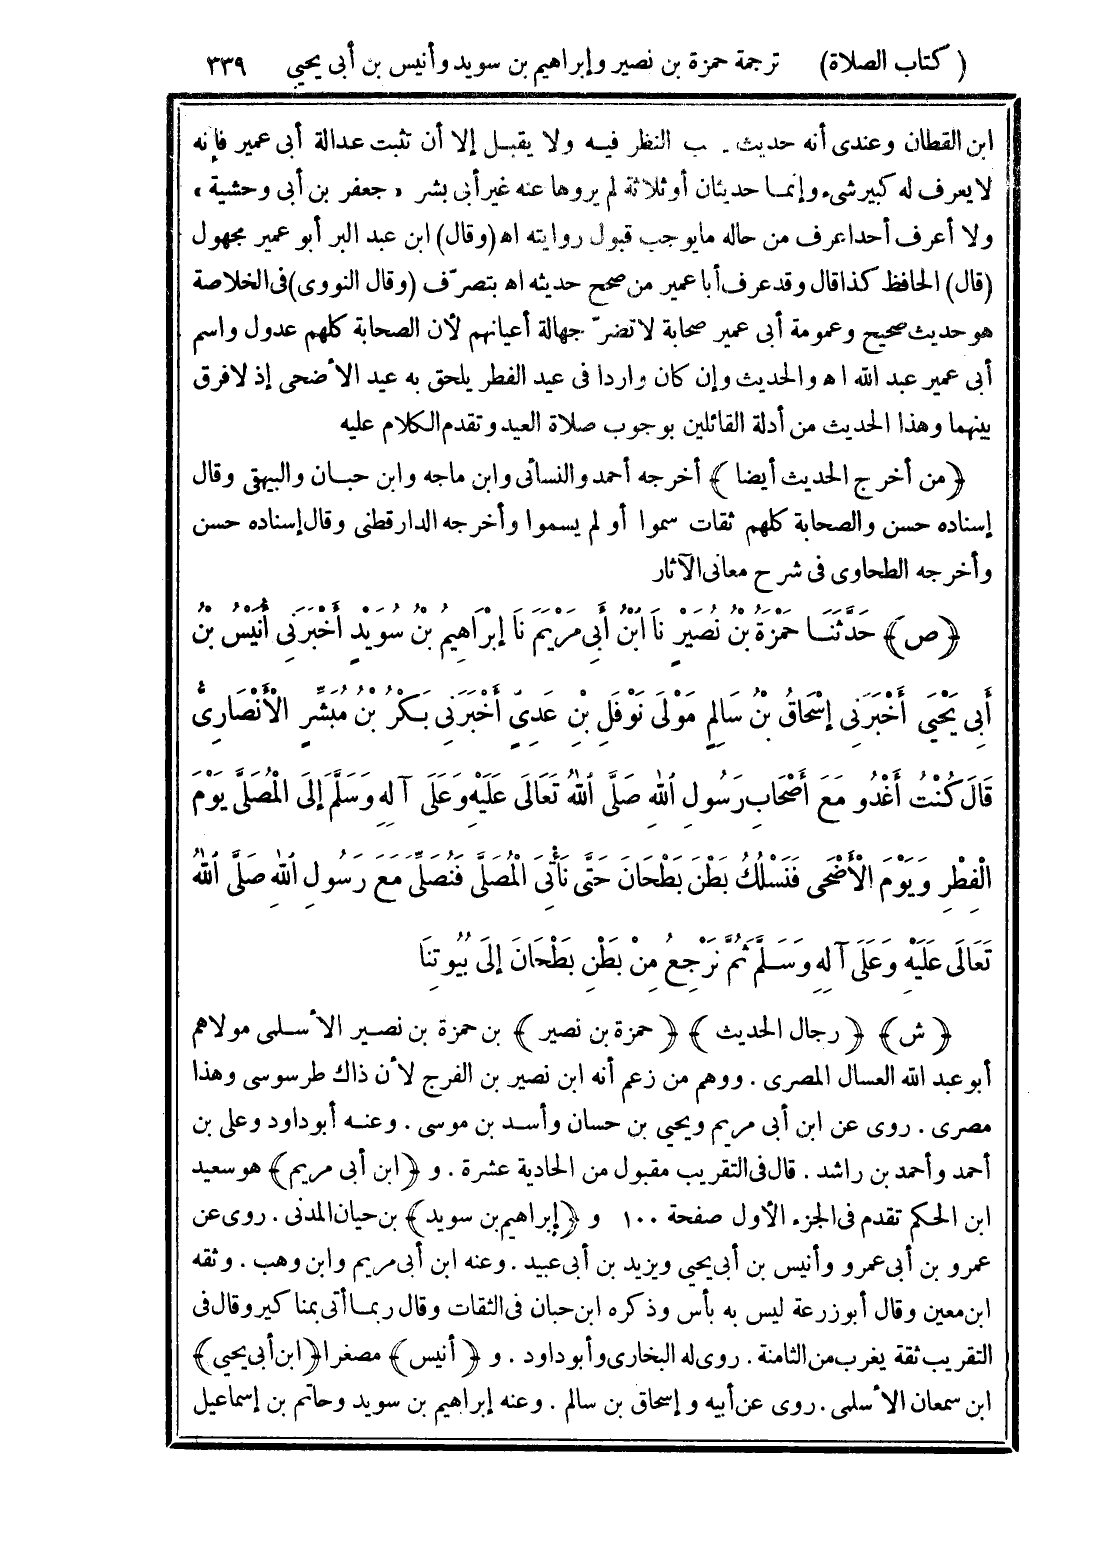 ( كتاب الصلاة) ترجمة حمزة بن نصير وإبراهيم بن سويد وأنيس بن أبى يحيى ٣٣٩
ابن القطان وعندى أنه حديث النظر فيه ولا يقبل إلا أن تثبت عدالة أبى عمير فإنه
لايعرف له كبيرشىء وإنما حديثان أوثلاثة لم يروها عنه غيرأبى بشر «جعفر بن أبى وحشية»
ولا أعرف أحداعرف من حاله مايوجب قبول روايته اه (وقال) ابن عبد البر أبو عمير مجهول
(قال) الحافظ كذاقال وقدعرف أباعمير من صحح حديثه اه بتصرّف (وقال النووى)فى الخلاصة
هوحديث صحيح وعمومة أبى عمير صحابة لاتضرّ جهالة أعيانهم لأن الصحابة كلهم عدول واسم
أبى عمير عبد الله اه والحديث وإن كان واردا فى عيد الفطر يلحق به عيد الأضحى إذ لافرق
بينهما وهذا الحديث من أدلة القائلين بوجوب صلاة العيد وتقدم الكلام عليه
﴿من أخرج الحديث أيضا﴾ أخرجه أحمد والنسائى وابن ماجه وابن حبان والبيهقى وقال
إسناده حسن والصحابة كلهم ثقات سموا أو لم يسموا وأخرجه الدارقطنى وقال إسناده حسن
وأخرجه الطحاوى فى شرح معانى الآثار
﴿ص﴾ حَدَّثَنَا حَمْزَةُ بْنُ نُصَيْرٍ نَا ابْنُ أَبِى مَرْيَمَ نَا إِبْرَاهِيمُ بْنُ سُوَيْدٍ أَخْبَرَنِى أُنَيْسُ بْنُ
أَبِى يَحْيَى أَخْبَرَنِى إِسْحَاقُ بْنُ سَالِمٍ مَوْلَى نَوْفَلِ بْنِ عَدِىٍّ أَخْبَرَنِى بَكْرُ بْنُ مُبَشِّرٍ الْأَنْصَارِىُّ
قَالَ كُنْتُ أَغْدُو مَعَ أَصْحَابِ رَسُولِ اللهِ صَلَّى اللهُ تَعَالَى عَلَيْهِ وَعَلَى آلِهِ وَسَلَّمَ إِلَى الْمُصَلَّى يَوْمَ
الْفِطْرِ وَيَوْمَ الْأَضْحَى فَنَسْلُكُ بَطْنَ بَطْحَانَ حَتَّى نَأْتِىَ الْمُصَلَّى فَنُصَلِّىَ مَعَ رَسُولِ اللهِ صَلَّى اللهُ
تَعَالَى عَلَيْهِ وَعَلَى آلِهِ وَسَلَّمَ ثُمَّ نَرْجِعُ مِنْ بَطْنِ بَطْحَانَ إِلَى بُيُوتِنَا
﴿ش﴾ ﴿رجال الحديث﴾ ﴿حمزة بن نصير﴾ بن حمزة بن نصير الأسلمى مولاهم
أبو عبد الله العسال المصرى . ووهم من زعم أنه ابن نصير بن الفرج لأن ذاك طرسوسى وهذا
مصرى . روى عن ابن أبى مريم ويحيى بن حسان وأسد بن موسى . وعنه أبوداود وعلى بن
أحمد وأحمد بن راشد . قال فى التقريب مقبول من الحادية عشرة . و ﴿ابن أبى مريم﴾ هوسعيد
ابن الحكم تقدم فى الجزء الأول صفحة ١٠٠ و ﴿إبراهيم بن سويد﴾ بن حيان المدنى . روى عن
عمرو بن أبى عمرو وأنيس بن أبى يحيى ويزيد بن أبى عبيد . وعنه ابن أبى مريم وابن وهب . وثقه
ابن معين وقال أبوزرعة ليس به بأس وذكره ابن حبان فى الثقات وقال ربما أتى بمناكير وقال فى
التقريب ثقة يغرب من الثامنة . روى له البخارى وأبوداود . و ﴿أنيس﴾ مصغرا﴿ابن أبى يحيى﴾
ابن سمعان الأسلمى . روى عن أبيه وإسحاق بن سالم . وعنه إبراهيم بن سويد وحاتم بن إسماعيل